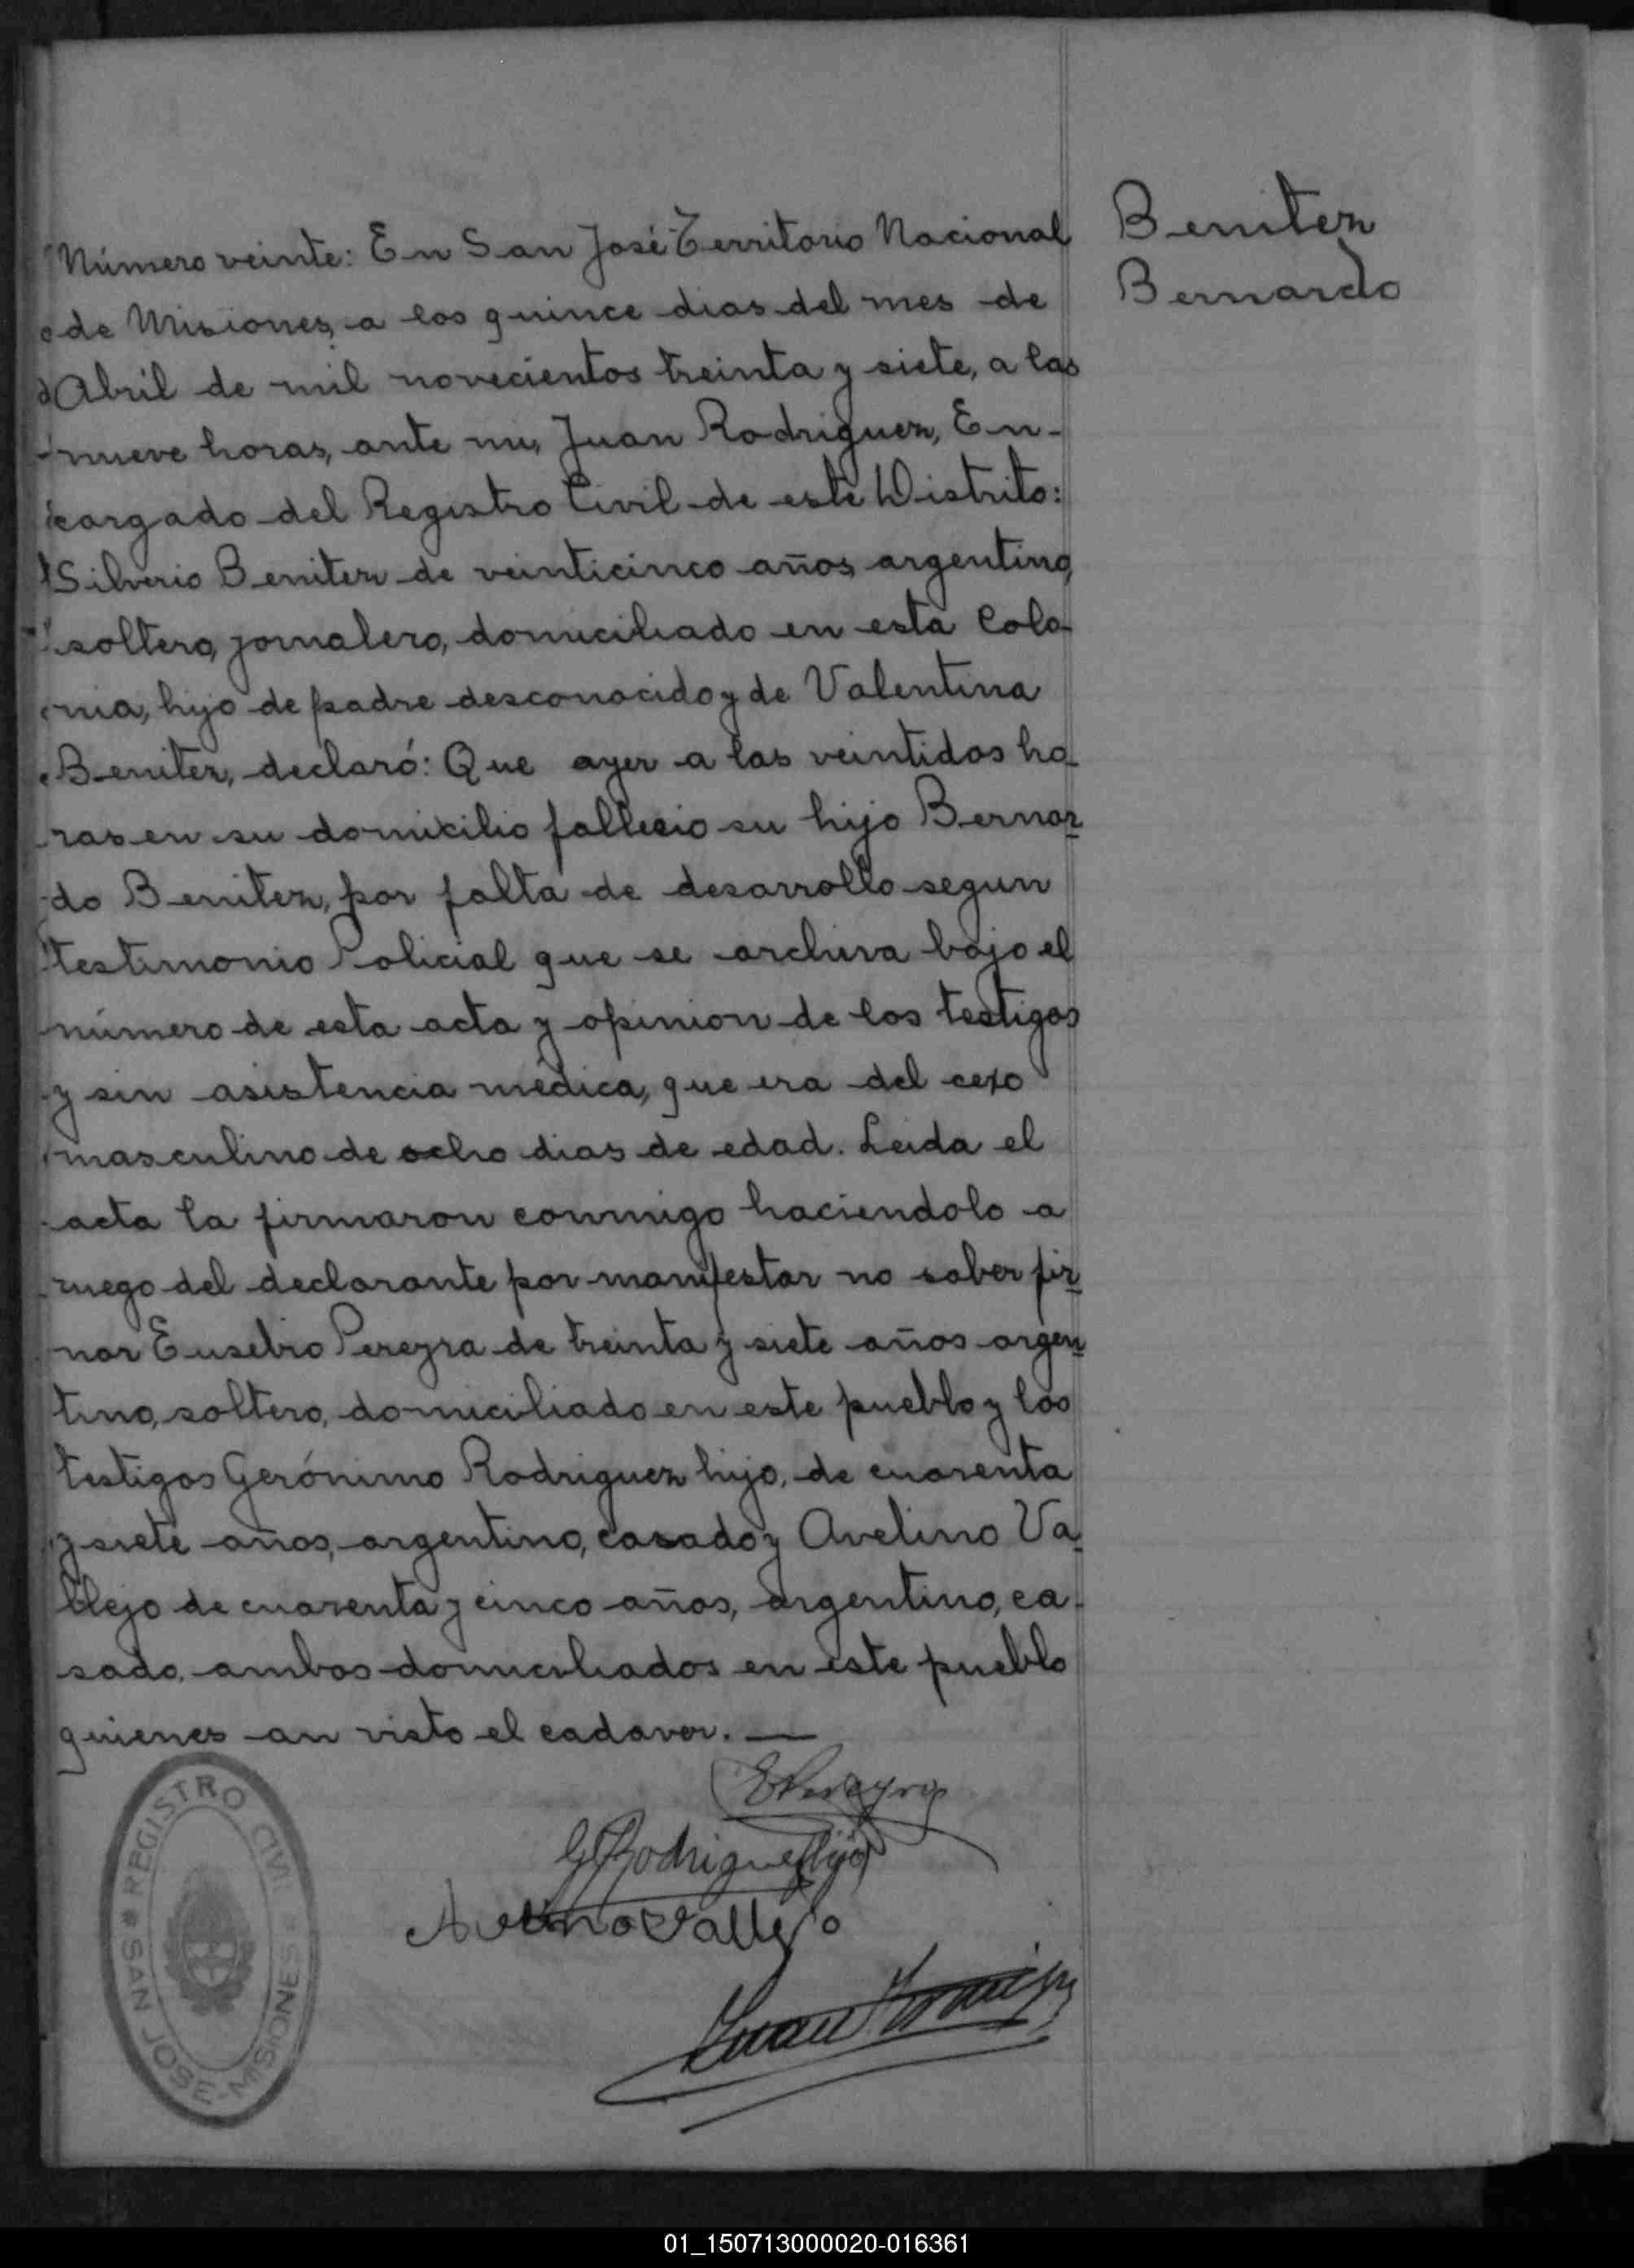 Benitez
Bernardo
Número veinte: En San José Territorio Nacional
de Misiones, a los quince dias del mes de
Abril de mil novecientos treinta y siete, a las
nueve horas, ante mi, Juan Rodriguez, En-
cargado del Registro Civil de este Distrito:
Silverio Benitez de veinticinco años, argentino,
soltero, jornalero, domiciliado en esta Colo-
nia, hijo de padre desconocido y de Valentina
Benitez, declaró: Que ayer a las veintidos ho-
ras en su domicilio fallecio su hijo Bernar-
do Benitez, por falta de desarrollo segun
testimonio Policial que se archiva bajo el
número de esta acta y opinion de los testigos
y sin asistencia médica, que era del cexo
masculino de ocho dias de edad. Leida el
acta la firmaron conmigo haciendolo a
ruego del declarante por manifestar no saber fir-
mar Eusebio Pereyra de treinta y siete años argen-
tino, soltero, domiciliado en este pueblo y los
testigos Gerónimo Rodriguez hijo, de cuarenta
y siete años, argentino, casado y Avelino Va-
llejo de cuarenta y cinco años, argentino, ca-
sado, ambos domiciliados en este pueblo
quienes an visto el cadaver. —
EPereyra
GRodriguez hijo
Avelino Vallejo
Juan Rodriguez
REGISTRO CIVIL
SAN JOSE-MISIONES
01_150713000020-016361